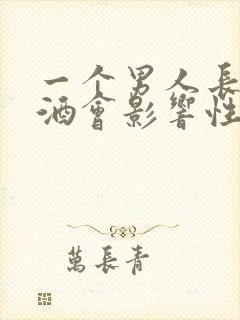 一个男人長
酒會影響性
萬長青